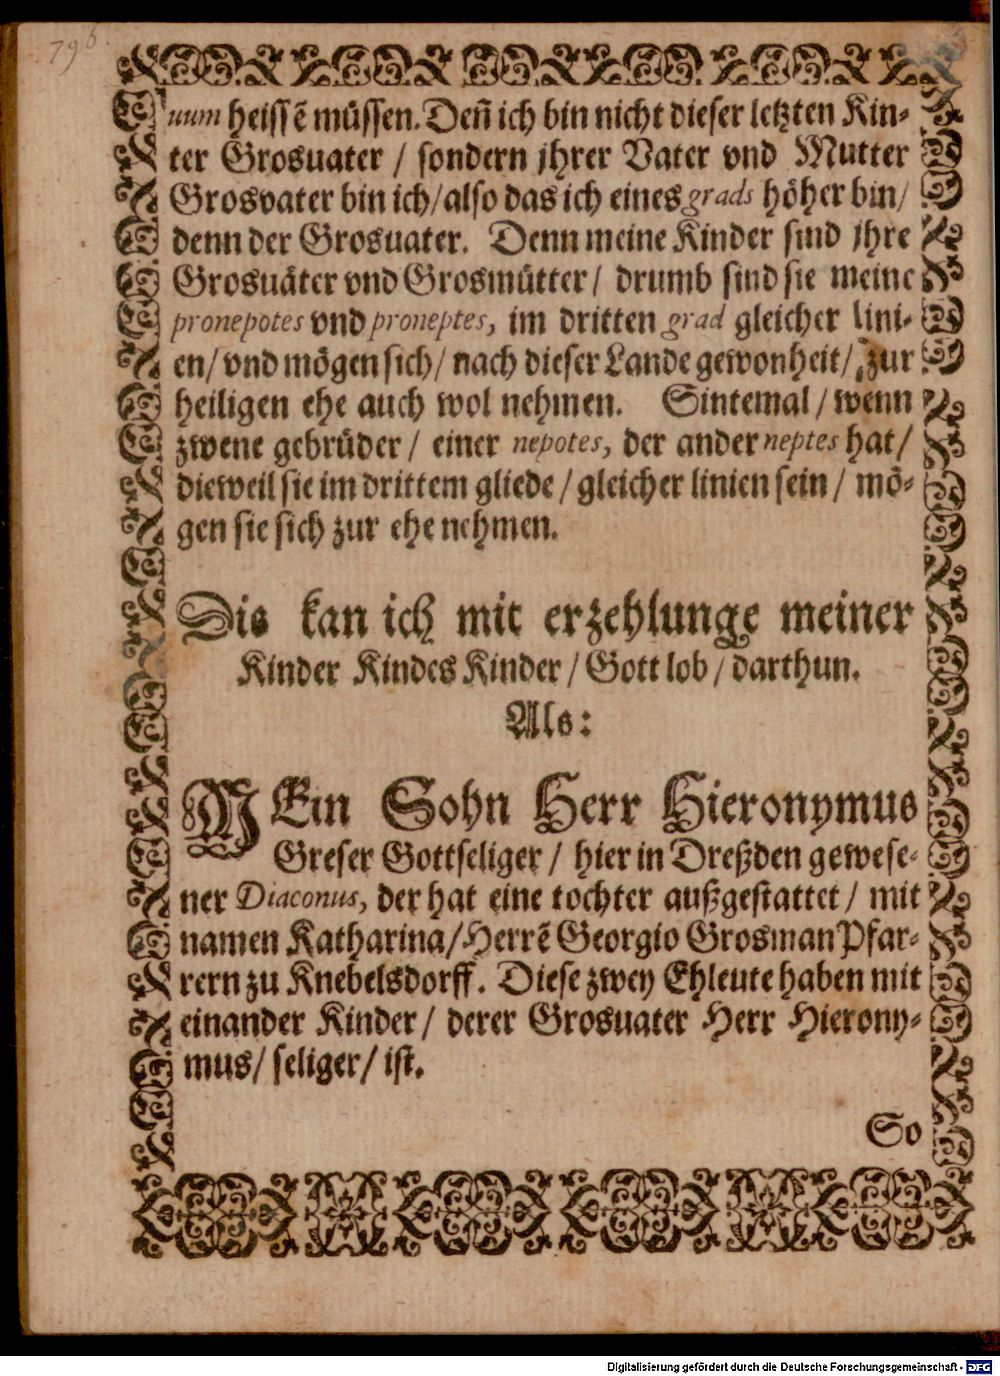 796.
uum heissē müssen. Den̄ ich bin nicht dieser letzten Kin⸗
ter Grosuater / sondern jhrer Vater vnd Mutter
Grosvater bin ich / also das ich eines grads höher bin /
denn der Grosuater. Denn meine Kinder sind jhre
Grosuäter vnd Grosmütter / drumb sind sie meine
pronepotes vnd proneptes, im dritten grad gleicher lini⸗
en / vnd mögen sich / nach dieser Lande gewonheit / zur
heiligen ehe auch wol nehmen. Sintemal / wenn
zwene gebrüder / einer nepotes, der ander neptes hat /
dieweil sie im drittem gliede / gleicher linien sein / mö⸗
gen sie sich zur ehe nehmen.
Dis kan ich mit erzehlunge meiner
Kinder Kindes Kinder / Gott lob / darthun.
Als:
MEin Sohn Herr Hieronymus
Greser Gottseliger / hier in Dreßden gewese⸗
ner Diaconus, der hat eine tochter außgestattet / mit
namen Katharina / Herrē Georgio Grosman Pfar⸗
rern zu Knebelsdorff. Diese zwey Ehleute haben mit
einander Kinder / derer Grosuater Herr Hierony⸗
mus / seliger / ist.
So
Digitalisierung gefördert durch die Deutsche Forschungsgemeinschaft - DFG